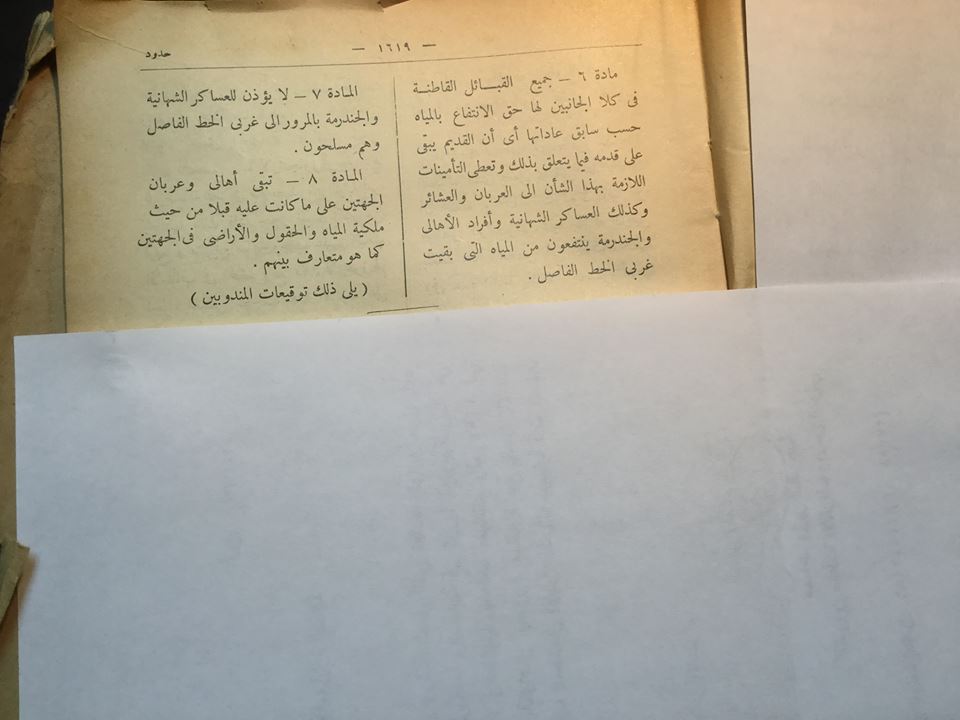 حدود
— ١٦١٩ —
مادة ٦ — جميع القبائل القاطنة
فى كلا الجانبين لها حق الانتفاع بالمياه
حسب سابق عاداتها أى أن القديم يبقى
على قدمه فيما يتعلق بذلك وتعطى التأمينات
اللازمة بهذا الشأن الى العربان والعشائر
وكذلك العساكر الشهانية وأفراد الأهالى
والجندرمة ينتفعون من المياه التى بقيت
غربى الخط الفاصل .
المادة ٧ — لا يؤذن للعساكر الشهانية
والجندرمة بالمرور الى غربى الخط الفاصل
وهم مسلحون .
المادة ٨ — تبقى أهالى وعربان
الجهتين على ما كانت عليه قبلا من حيث
ملكية المياه والحقول والأراضى فى الجهتين
كما هو متعارف بينهم .
( يلى ذلك توقيعات المندوبين )